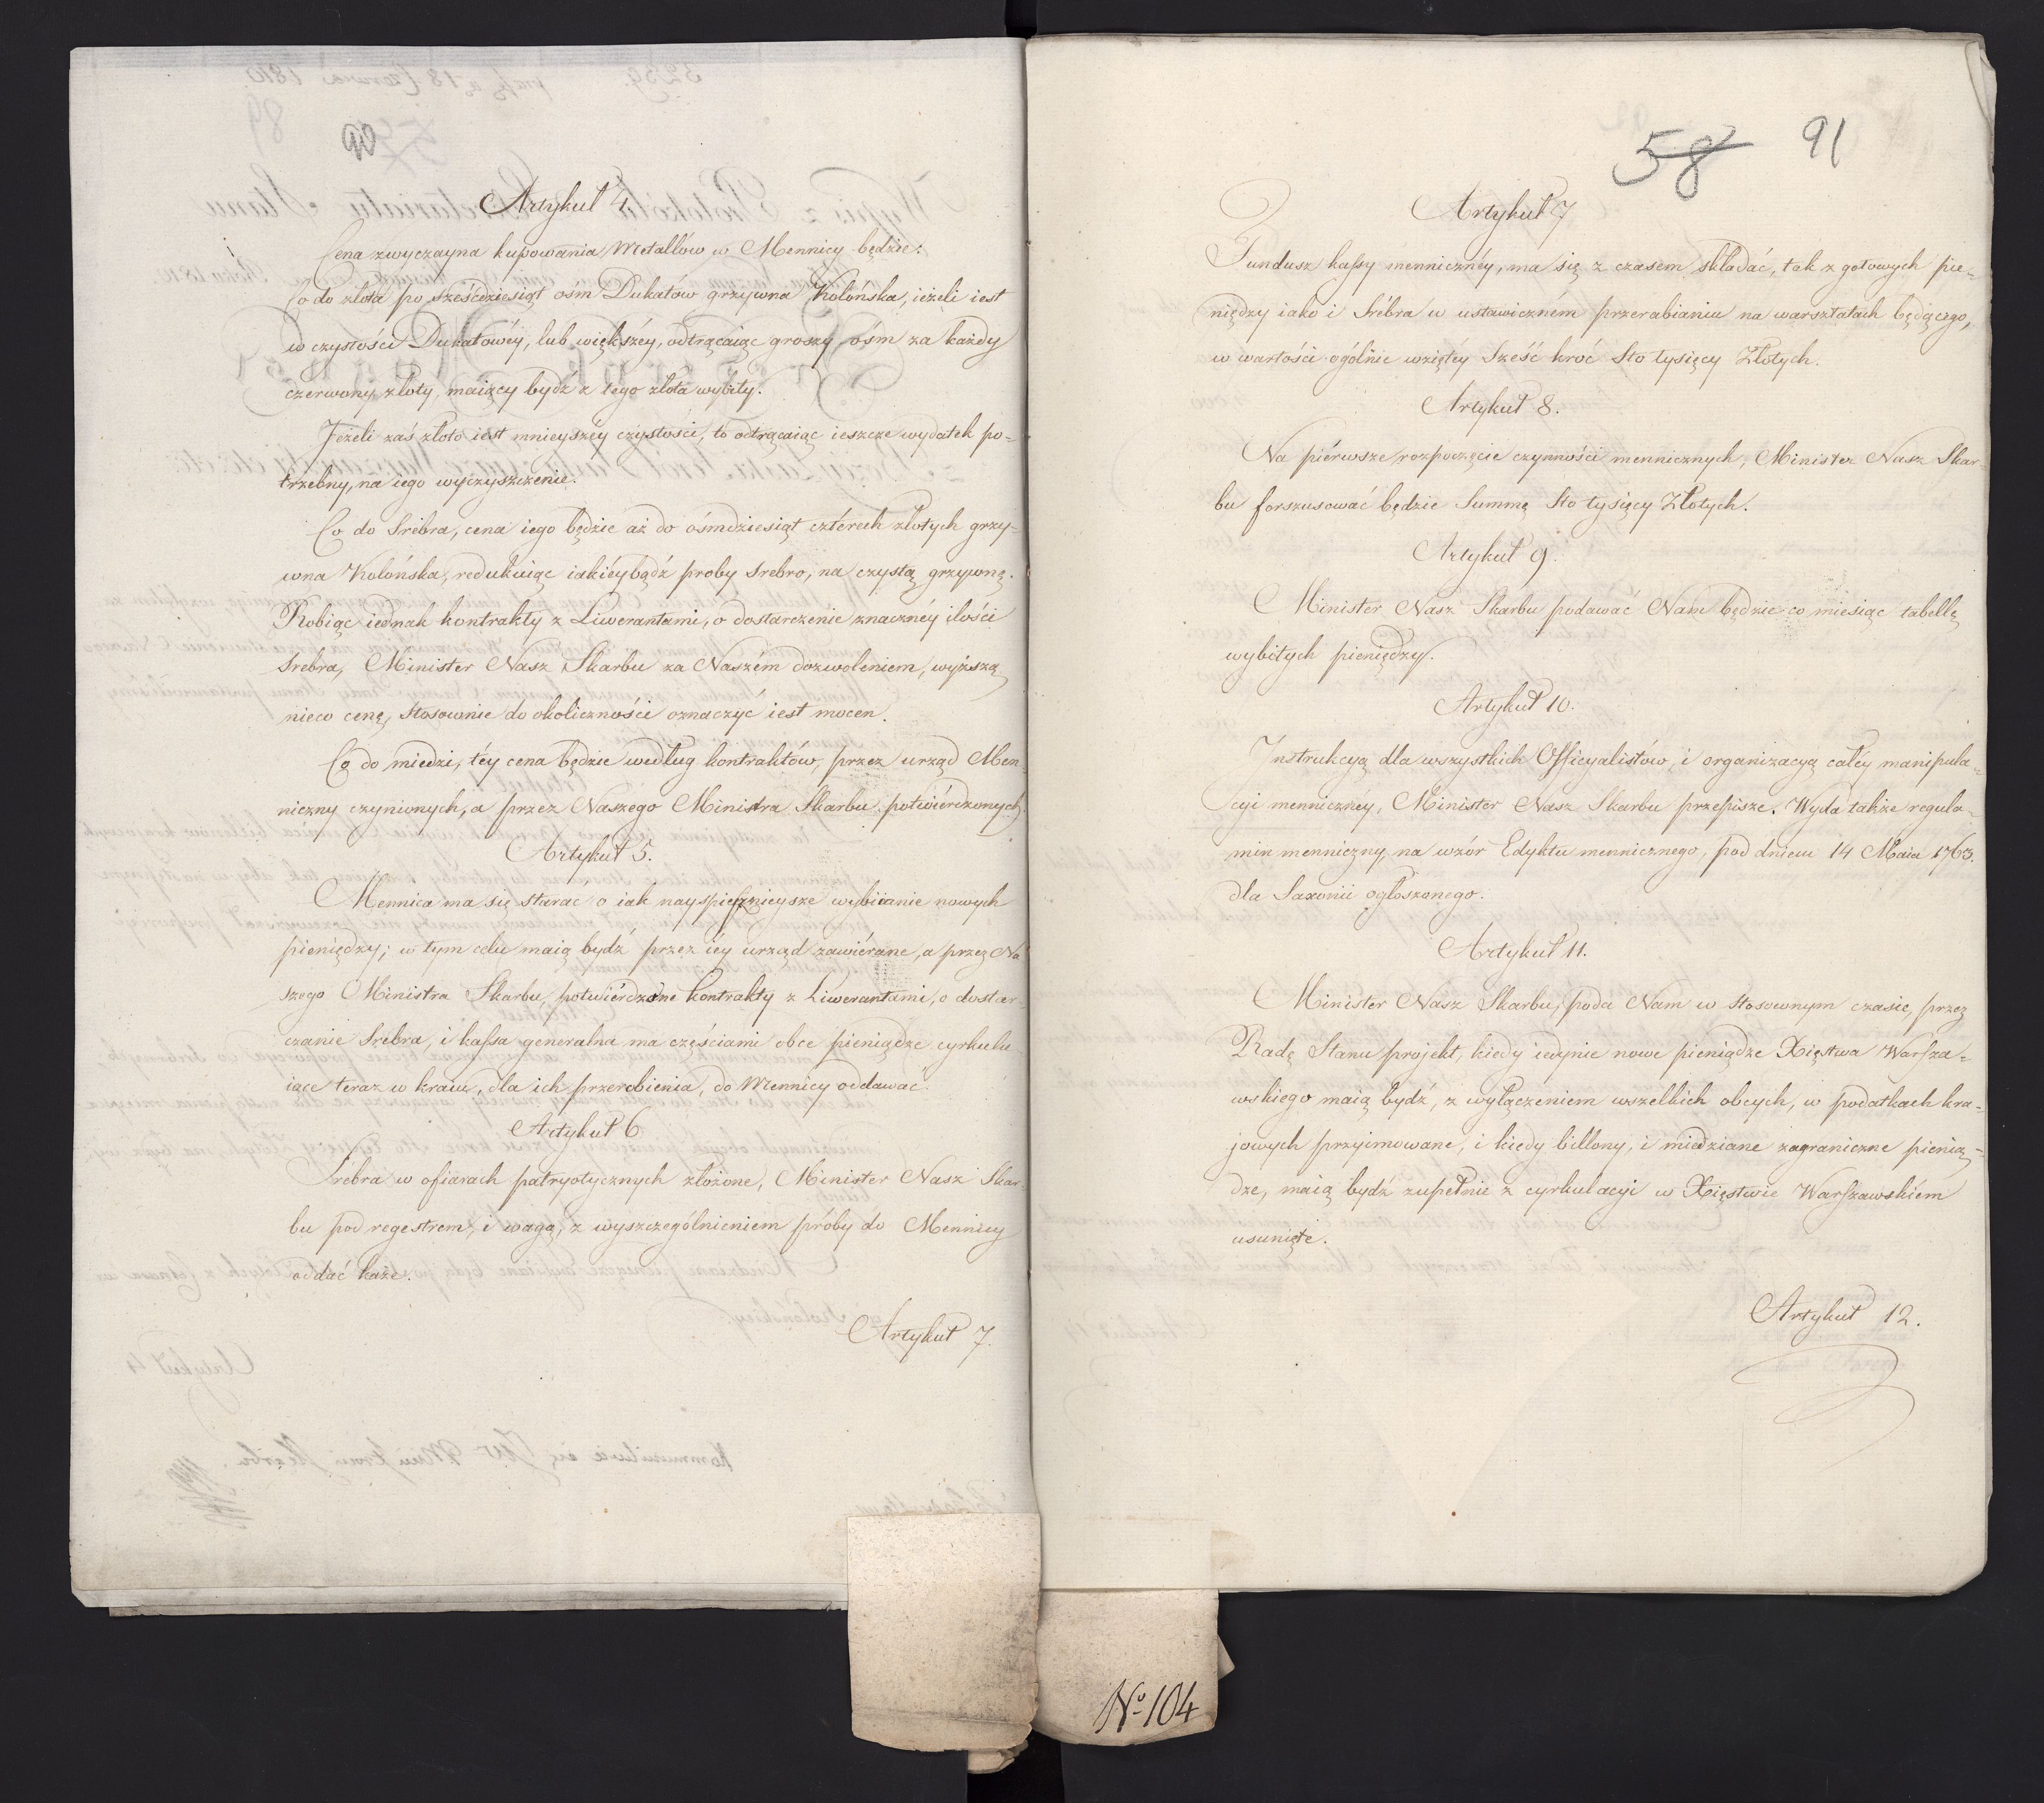 90
Artykuł 4.
Cena zwyczayna kupowania Metallów w Mennicy będzie:
Co do złota po sześćdziesiąt ośm Dukatów grzywna Kolońska, ieżeli iest
w czystości Dukatowéy, lub większéy, odtrącaiąc groszy ośm za każdy
czerwony złoty, maiący bydź z tego złota wybity.
Jeżeli zaś złoto iest mnieyszéy czystości, to odtrącaiąc ieszcze wydatek po-
trzebny, na iego wyczyszczenie.
Co do Srébra, cena iego będzie aż do ośmdziesiąt cztérech złotych grzy-
wna Kolońska, redukuiąc iakieybądź proby srebro, na czystą grzywnę.
Robiąc iednak kontrakty z Liwerantami, o dostarczenie znacznéy ilości
Srebra, Minister Nasz Skarbu za Naszém dozwoleniem, wyższą
nieco cenę, stosownie do okoliczności oznaczyć iest mocen.
Co do miedzi, téy cena będzie według kontraktów, przez urząd Men-
niczny czynionych, a przez Naszego Ministra Skarbu potwiérdzonych.
Artykuł 5.
Mennica ma się starać o iak nayspiesznieysze wybiianie nowych
pieniędzy; w tym celu maią bydź przez iéy urząd zawiérane, a przez Na
szego Ministra Skarbu, potwiérdzone kontrakty z Liwerantami, o dostar-
czanie Srebra, i kassa generalna ma częściami obce pieniądze cyrkulu
iące teraz w kraiu, dla ich przerobienia, do Mennicy oddawać.
Artykuł 6
Srébra w ofiarach patryotycznych złożone, Minister Nasz Skar-
bu pod regestrem, i wagą, z wyszczególnieniem próby do Mennicy
oddać każe.
Artykuł 7.
58 91
Artykuł 7
Fundusz kassy mennicznéy, ma się z czasem składać, tak z gotowych pie-
niędzy iako i Srébra w ustawiczném przerabianiu na warsztatach będącego,
w wartości ogólnie wziętéy Sześć kroć Sto tysięcy Złotych.
Artykuł 8.
Na piérwsze rozpoczęcie czynności mennicznych, Minister Nasz Skar-
bu forszusować będzie Summę Sto tysięcy Złotych.
Artykuł 9.
Minister Nasz Skarbu podawać Nam będzie co miesiąc tabellę
wybitych pieniędzy.
Artykuł 10.
Instrukcyą dla wszystkich Officyalistów, i organizacyą całéy manipula-
cyi mennicznéy, Minister Nasz Skarbu przepisze. Wyda także regula-
min menniczny, na wzór Edyktu mennicznego, pod dniem 14 Maia 1763.
dla Saxonii ogłoszonego.
Artykuł 11.
Minister Nasz Skarbu, poda Nam w stosownym czasie, przez
Radę Stanu projekt, kiedy iedynie nowe pieniądze Xięstwa Warsza-
wskiego maią bydź, z wyłączeniem wszelkich obcych, w podatkach kra-
jowych przyimowane, i kiedy billony, i miedziane zagraniczne pienią-
dze, maią bydź zupełnie z cyrkulacyi w Xięstwie Warszawskiém
usunięte.
Artykuł 12.
No 104